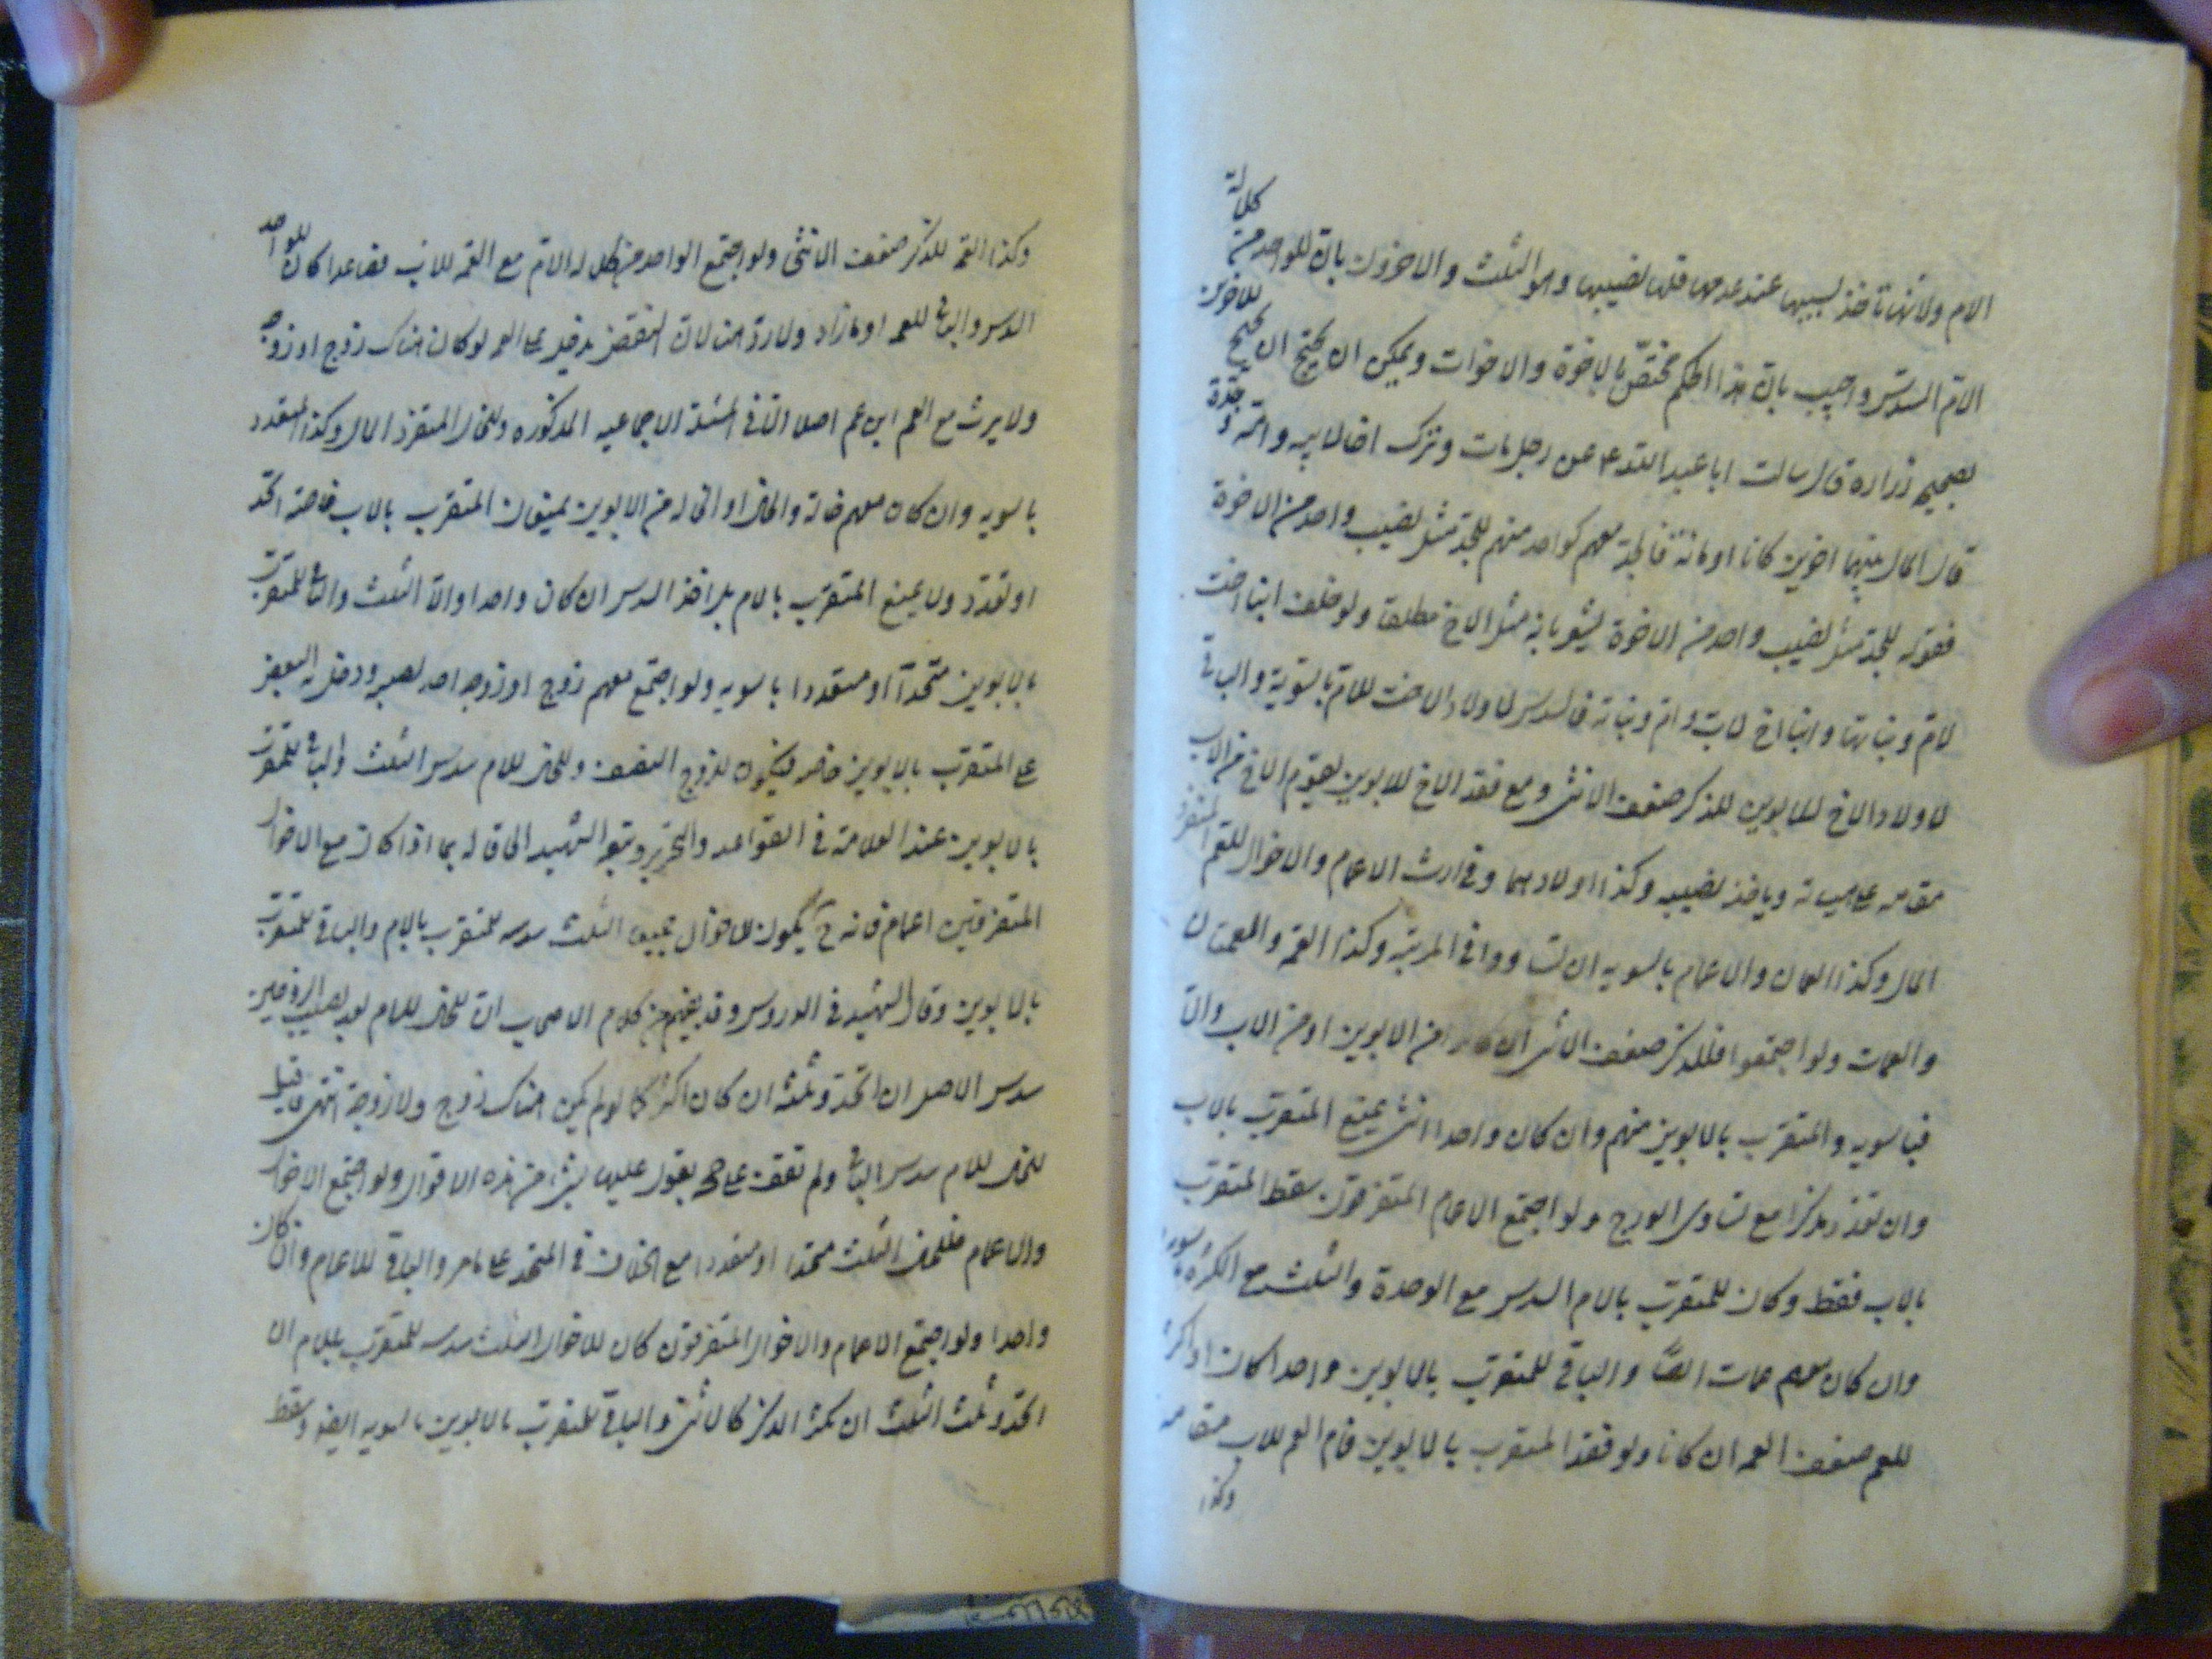 الام ولانها تاخذ بسببها عند عدمها فلها نصيبها وهو الثلث والاخرون بان للواحد من كلالة
الام السدس واجيب بان هذا الحكم مختص بالاخوة والاخوات ويمكن ان يحتج للاخرين
بصحيحه زراره قال سالت ابا عبد الله ع عن رجل مات وترك اخا لابيه وامه وجده
قال المال بينهما اخوين كانا او مائة فالجد معهم كواحد منهم للجد مثل نصيب واحد من الاخوة
فقوله للجد مثل نصيب واحد من الاخوة يشعر بانه مثل الاخ مطلقا ولو خلف ابنا اخت
لام وبناتها وابنا اخ لاب وام وبناته فالسدس لاولاد الاخت للام بالسوية والباقي
لاولاد الاخ للابوين للذكر ضعف الانثى ومع فقد الاخ للابوين يقوم الاخ من الاب
مقامه على هيئته وياخذ نصيبه وكذا اولادهما وفي ارث الاعمام والاخوال للعم المنفرد
المال وكذا العمان والاعمام بالسويه ان تساووا في المرتبه وكذا العمة والعمتان
والعمات ولو اجتمعوا فللذكر ضعف الانثى ان كانوا من الابوين او من الاب والا
فبالسويه والمتقرب بالابوين منهم وان كان واحدا انثى يمنع المتقرب بالاب
وان تعدد ذكرا مع تساوى الدرج ولو اجتمع الاعمام المتفرقون سقط المتقرب
بالاب فقط وكان للمتقرب بالام السدس مع الوحدة والثلث مع الكثرة بالسويه
وان كان معهم عمات ايضا والباقي للمتقرب بالابوين واحدا كان او اكثر
للعم ضعف العمه ان كانا ولو فقد المتقرب بالابوين قام العم للاب مقامه
وكذا
وكذا العمة للذكر ضعف الانثى ولو اجتمع الواحد من كلالة الام مع العمه للاب فصاعدا كان للواحد
السدس والباقي للعمه او ما زاد ولا رد هنا لان النقص يدخل على العمه لو كان هناك زوج او زوجه
ولا يرث مع العم ابن عم اصلا الا في المسئلة الاجماعيه المذكوره وللخال المنفرد المال وكذا المتعدد
بالسويه وان كان معهم خالة والخال او الخاله من الابوين يمنعان المتقرب بالاب خاصة اتحد
او تعدد ولا يمنع المتقرب بالام بل اخذ السدس ان كان واحدا والا الثلث والباقي للمتقرب
بالابوين متحدا او متعددا بالسويه ولو اجتمع معهم زوج او زوجه اخذ نصيبه ودخل النقص
على المتقرب بالابوين خاصه فيكون للزوج النصف وللخال للام سدس الثلث والباقي للمتقرب
بالابوين عند العلامة في القواعد والتحرير وتبعه الشهيد الحاقا له بما اذا كان مع الاخوال
المتفرقين اعمام فانه ح يكون للاخوال جميعا الثلث سدسه للمتقرب بالام والباقي للمتقرب
بالابوين وقال الشهيد في الدروس وقد يفهم من كلام الاصحاب ان للخال للام بعد نصيب الزوجين
سدس الاصل ان اتحد وثلثه ان كان اكثر كما لو لم يكن هناك زوج ولا زوجة انتهى وقيل
للخال للام سدس الباقي ولم نقف على حجه يعول عليها بشيء من هذه الاقوال ولو اجتمع الاخوال
والاعمام فللخال الثلث متحدا او متعددا مع الخلاف في المتحد على ما مر والباقي للاعمام وان كان
واحدا ولو اجتمع الاعمام والاخوال المتفرقون كان للاخوال الثلث سدسه للمتقرب بالام ان
اتحد وثلث الثلث ان كثر الذكر كالانثى والباقي للمتقرب بالابوين بالسويه ايضا وسقط